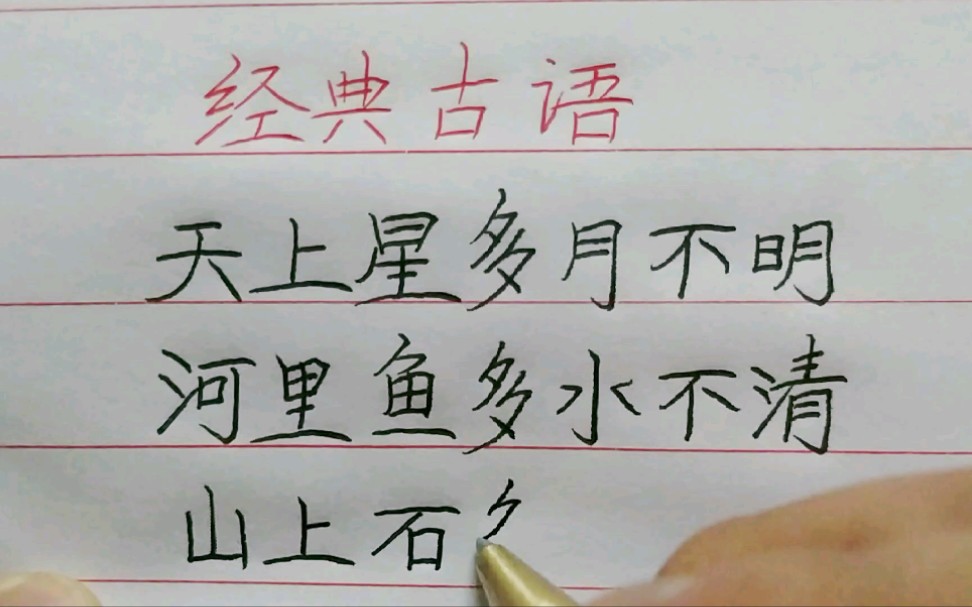 经典古语
天上星多月不明
河里鱼多水不清
山上石